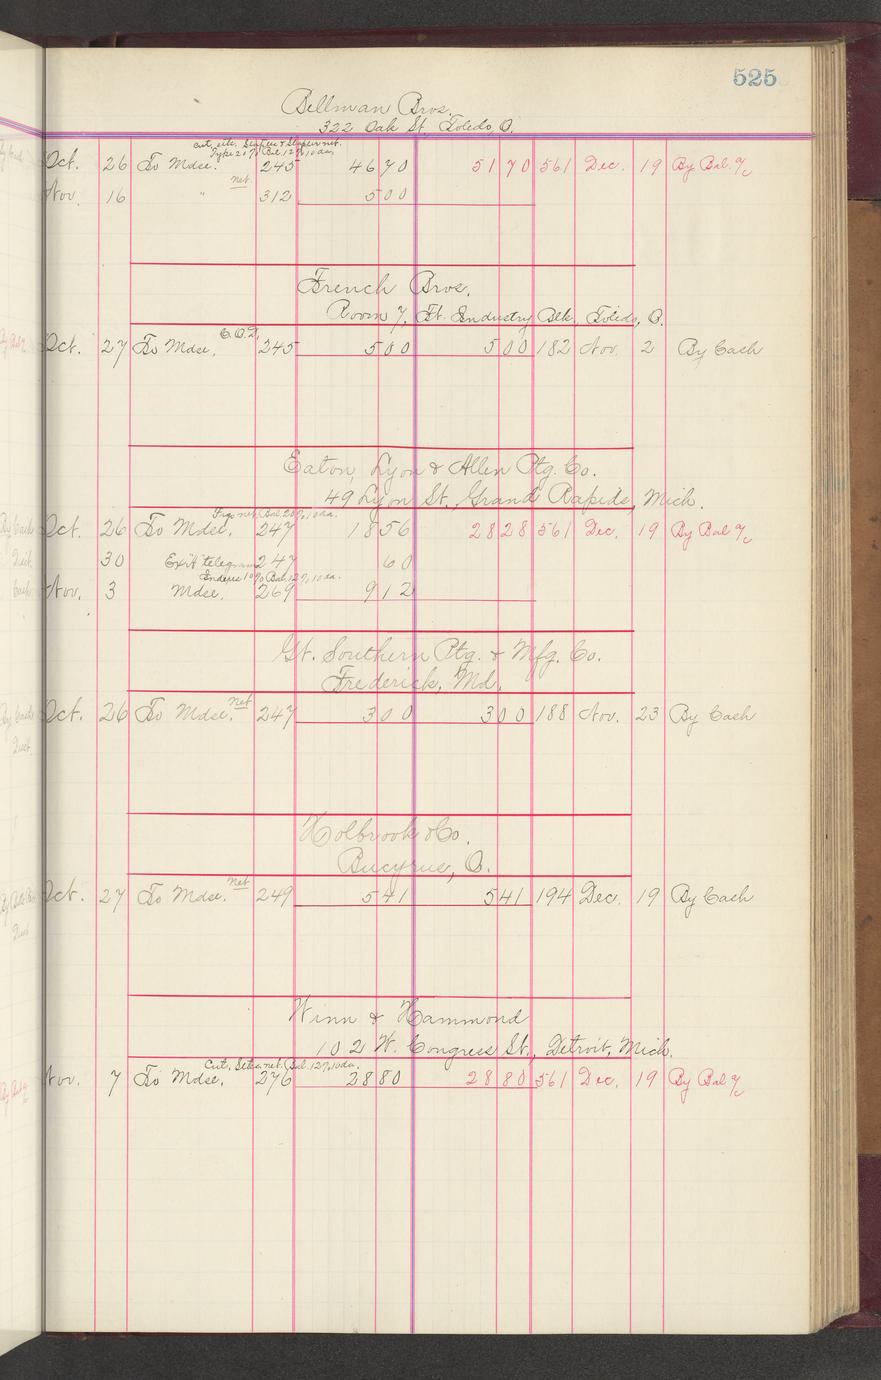 525
Bellman Bros.
322 Oak St. Toledo, O.
Cut, etc. Stapler & Staples net.
Type 20% Bal. 12% 10 da.
Oct. 26 To Mdse. 245 46 70 51 70 561 Dec. 19 By Bal. a/c
net
Nov. 16 " 312 5 00
French Bros.
Room 7, Ft. Industry Blk, Toledo, O.
C.O.D.
Oct. 27 To Mdse. 245 5 00 5 00 182 Nov. 2 By Cash
Eaton, Lyon & Allen Ptg. Co.
49 Lyon St. Grand Rapids, Mich.
net, Bal. 20%, 10 da.
Oct. 26 To Mdse. 247 18 56 28 28 561 Dec. 19 By Bal a/c
30 telegram 247 60
10% Bal. 12%, 10 da.
Nov. 3 Mdse. 269 9 12
Gt. Southern Ptg. & Mfg. Co.
Frederick, Md.
net
Oct. 26 To Mdse. 247 3 00 3 00 188 Nov. 23 By Cash
Holbrook & Co.
Bucyrus, O.
net
Oct. 27 To Mdse. 249 5 41 5 41 194 Dec. 19 By Cash
Winn & Hammond
102 W. Congress St., Detroit, Mich.
Cut, net. Bal. 12%, 10 da.
Nov. 7 To Mdse. 276 28 80 28 80 561 Dec. 19 By Bal a/c